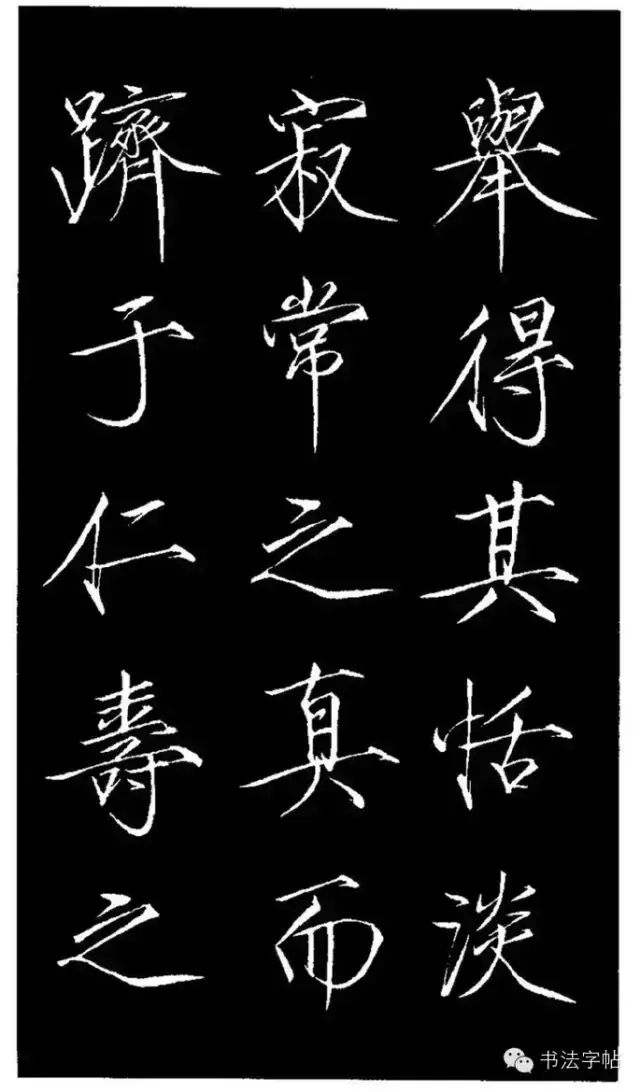 舉得其恬淡
寂常之真而
躋于仁壽之
书法字帖